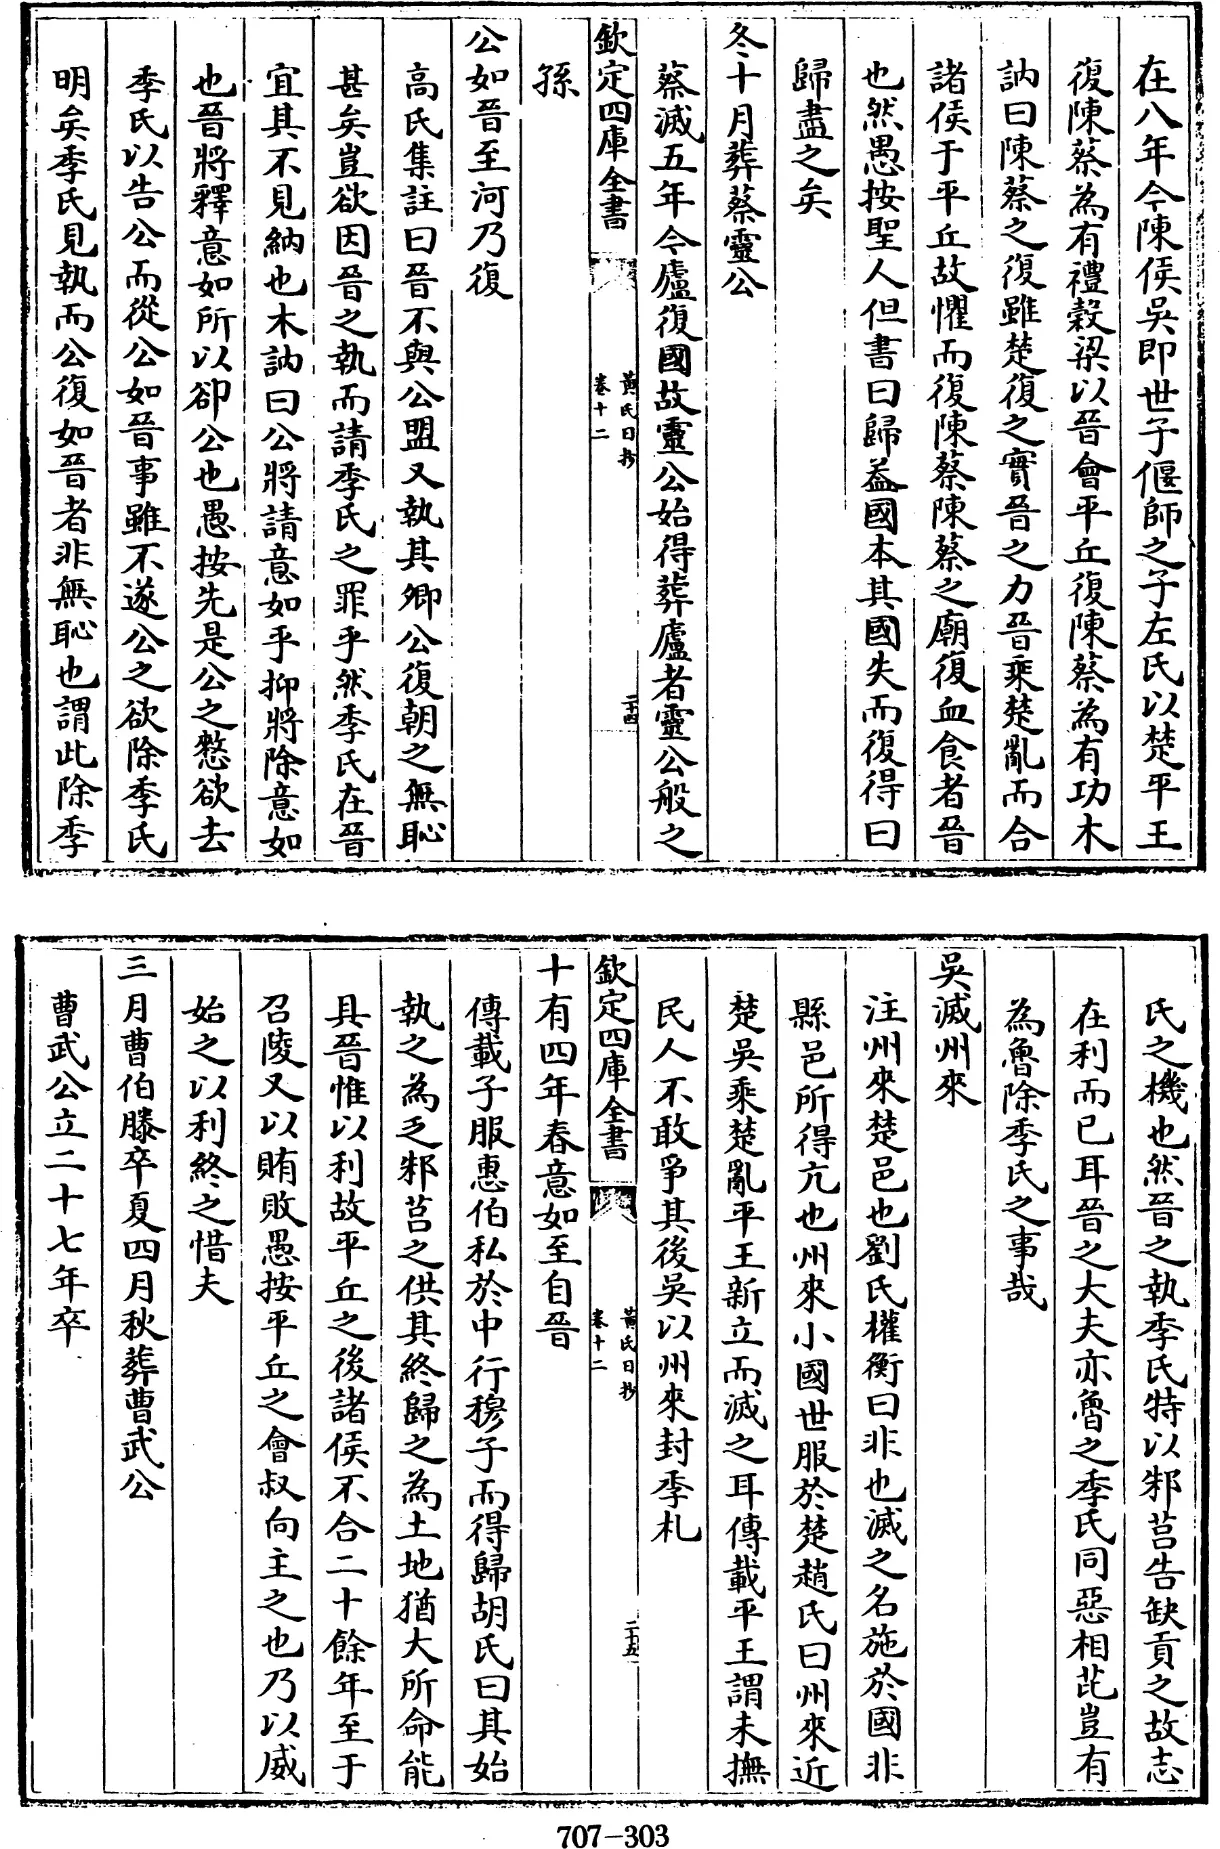 在八年今陳侯吳即世子偃師之子左氏以楚平王
復陳蔡為有禮穀梁以晉會平丘復陳蔡為有功木
訥曰陳蔡之復雖楚復之實晉之力晉乘楚亂而合
諸侯于平丘故懼而復陳蔡陳蔡之廟復血食者晉
也然愚按聖人但書曰歸葢國本其國失而復得曰
歸盡之矣
冬十月葬蔡靈公
蔡滅五年今廬復國故靈公始得葬廬者靈公般之
欽定四庫全書
黃氏日抄
卷十二
二十四
孫
公如晉至河乃復
高氏集註曰晉不與公盟又執其卿公復朝之無恥
甚矣豈欲因晉之執而請季氏之罪乎然季氏在晉
宜其不見納也木訥曰公將請意如乎抑將除意如
也晉將釋意如所以卻公也愚按先是公之憗欲去
季氏以告公而從公如晉事雖不遂公之欲除季氏
明矣季氏見執而公復如晉者非無恥也謂此除季
氏之機也然晉之執季氏特以邾莒告缺貢之故志
在利而已耳晉之大夫亦魯之季氏同惡相芘豈有
為魯除季氏之事哉
吳滅州來
注州來楚邑也劉氏權衡曰非也滅之名施於國非
縣邑所得亢也州來小國世服於楚趙氏曰州來近
楚吳乘楚亂平王新立而滅之耳傳載平王謂未撫
民人不敢爭其後吳以州來封季札
欽定四庫全書
黃氏日抄
卷十二
二十五
十有四年春意如至自晉
傳載子服惠伯私於中行穆子而得歸胡氏曰其始
執之為乏邾莒之供其終歸之為土地猶大所命能
具晉惟以利故平丘之後諸侯不合二十餘年至于
召陵又以賄敗愚按平丘之會叔向主之也乃以威
始之以利終之惜夫
三月曹伯滕卒夏四月秋葬曹武公
曹武公立二十七年卒
707-303